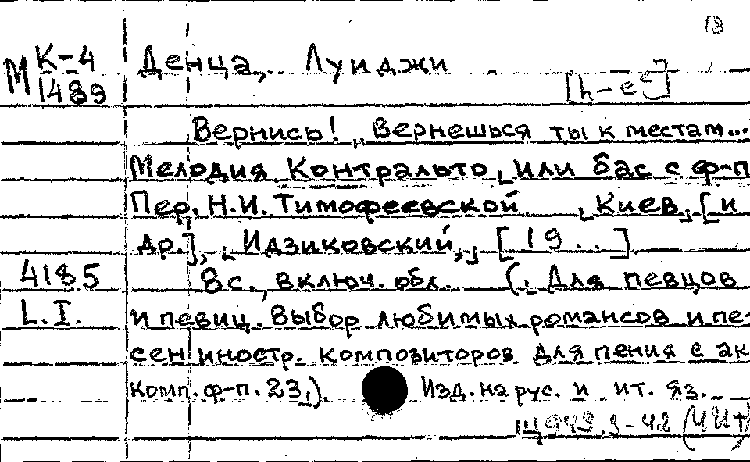 13
М К-4 Денца, Луиджи
1489 [h-e²]
Вернись! „Вернешься ты к местам...
Мелодия Контральто или бас с ф-п
Пер. Н.И. Тимофеевской Киев, [и
др.], Идзиковский, [19..]
4185 8с., включ. обл. (. Для певцов
L.I. и певиц. Выбор любимых романсов и пе-
сен иностр. композиторов для пения с ак
комп. ф-п. 23.). Изд. на рус. и ит. яз.
Щ943.3-42